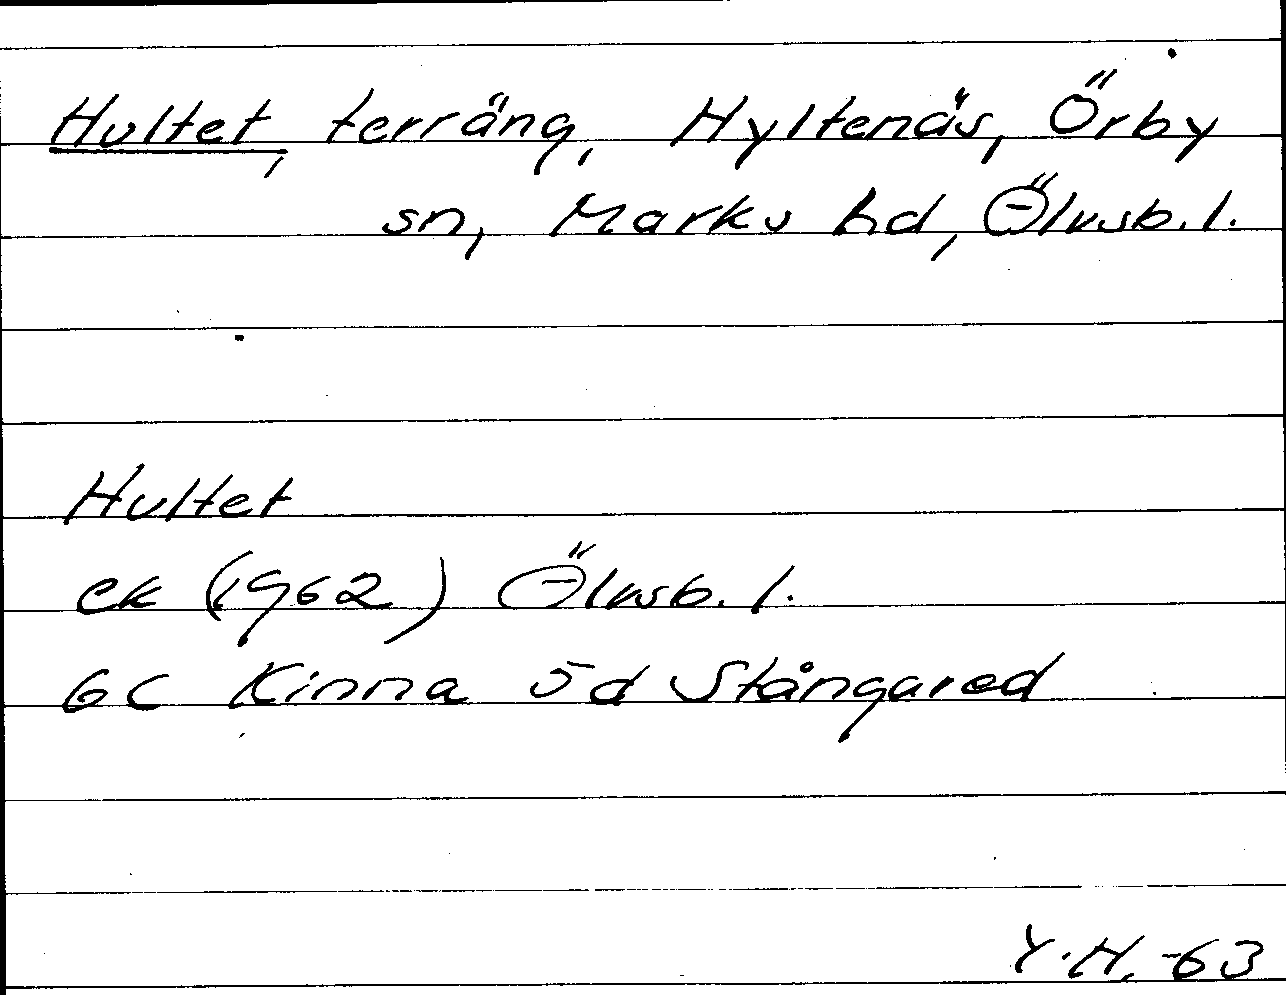 Hultet, terräng, Hyltenäs, Örby
sn, Marks hd, Älvsb. l.
Hultet
ek (1962) Älvsb. l.
6C Kinna 5d Stångared
Y.H. -63